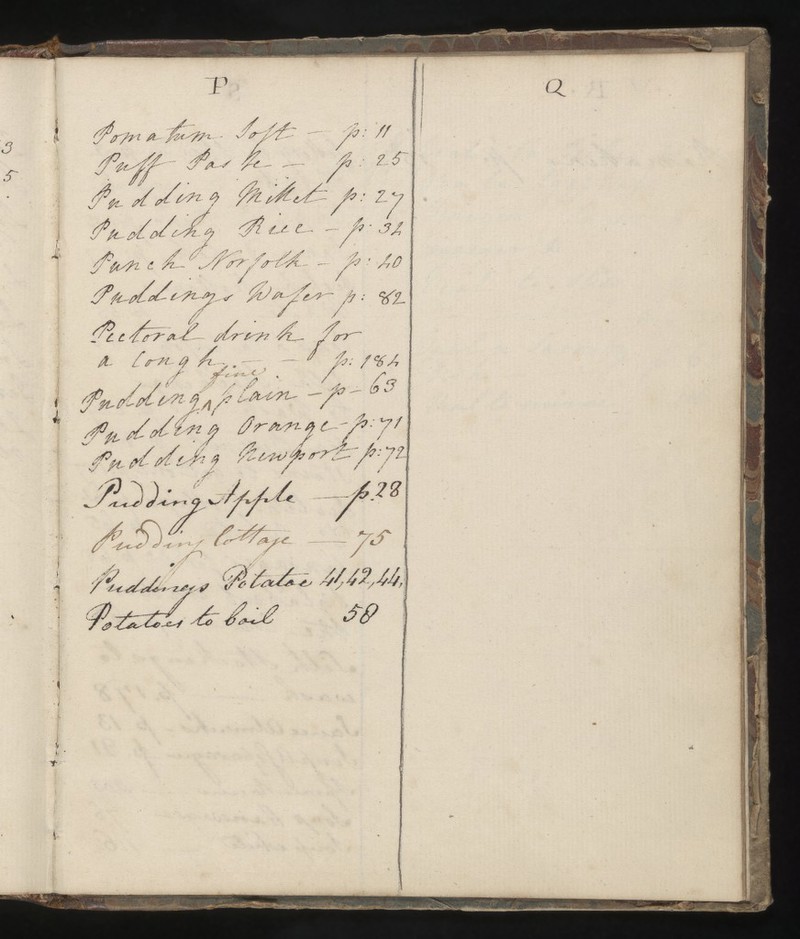 P
Pomatum Soft - p: 11
Puff Paste - p: 25
Pudding Millet p: 27
Pudding Rice - p: 34
Punch Norfolk - p: 40
Puddings Wafer p: 82
Pectoral drink for
a Cough - - p: 184
fine
Pudding ^ plain - p - 63
Pudding Orange - p: 71
Pudding Newport p: 72
Pudding Apple — p. 28
Pudding Cottage — 75
Puddings Potatoe 41, 42, 44,
Potatoes to boil 58
Q
3
5